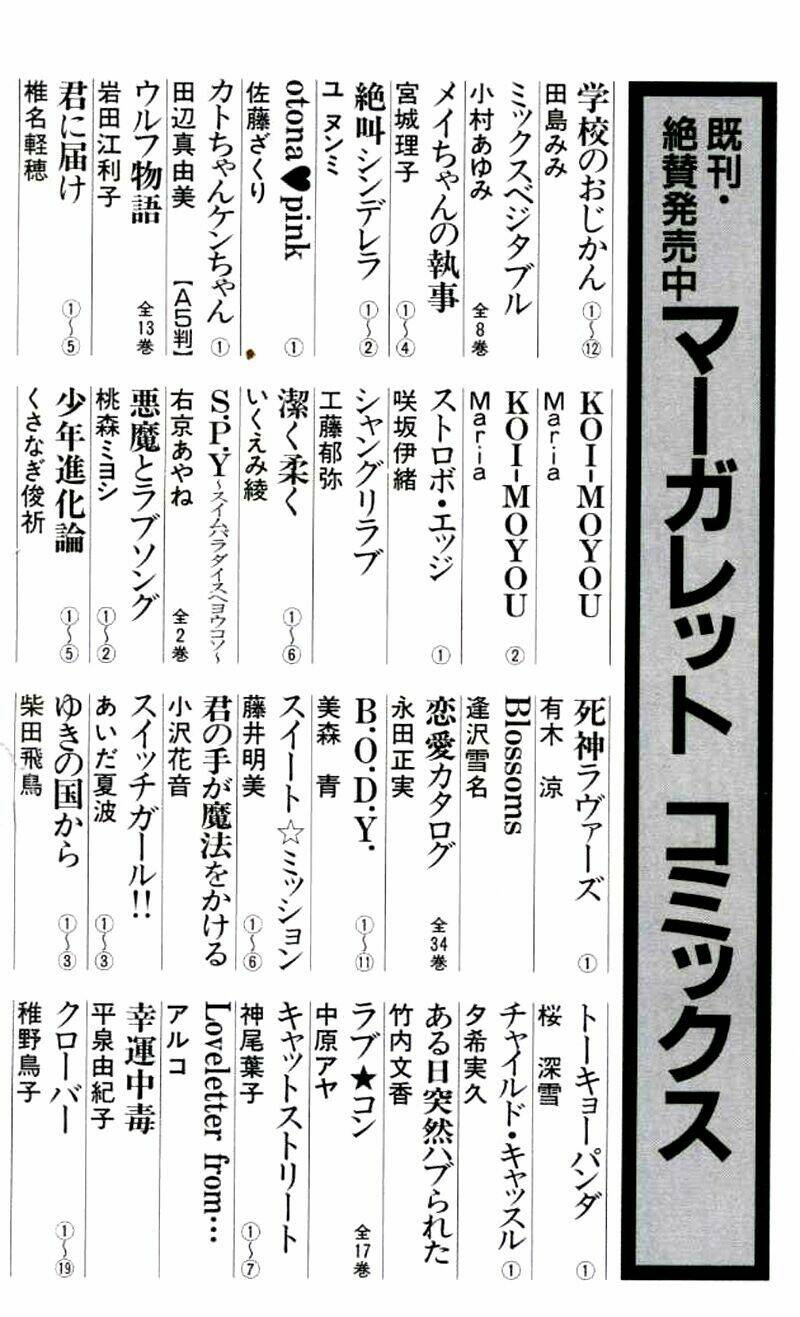 既刊・
絶賛発売中
マーガレット コミックス
学校のおじかん ①〜⑫
田島みみ
ミックスベジタブル 全8巻
小村あゆみ
メイちゃんの執事 ①〜④
宮城理子
絶叫シンデレラ ①〜②
ユ ヌンミ
otona♥pink ①
佐藤ざくり
カトちゃんケンちゃん ①
田辺真由美 【A5判】
ウルフ物語 全13巻
岩田江利子
君に届け ①〜⑤
椎名軽穂
KOI-MOYOU
Maria
KOI-MOYOU ②
Maria
ストロボ・エッジ ①
咲坂伊緒
シャングリラブ
工藤郁弥
潔く柔く ①〜⑥
いくえみ綾
S.P.Y〜スイムパラダイスヘヨウコソ〜
右京あやね 全2巻
悪魔とラブソング ①〜②
桃森ミヨシ
少年進化論 ①〜⑤
くさなぎ俊祈
死神ラヴァーズ ①
有木 涼
Blossoms
逢沢雪名
恋愛カタログ 全34巻
永田正実
B.O.D.Y. ①〜⑪
美森 青
スイート☆ミッション
藤井明美 ①〜⑥
君の手が魔法をかける
小沢花音
スイッチガール!! ①〜③
あいだ夏波
ゆきの国から ①〜③
柴田飛鳥
トーキョーパンダ ①
桜 深雪
チャイルド・キャッスル ①
夕希実久
ある日突然ハブられた
竹内文香
ラブ★コン 全17巻
中原アヤ
キャットストリート
神尾葉子 ①〜⑦
Loveletter from…
アルコ
幸運中毒
平泉由紀子
クローバー ①〜⑲
稚野鳥子